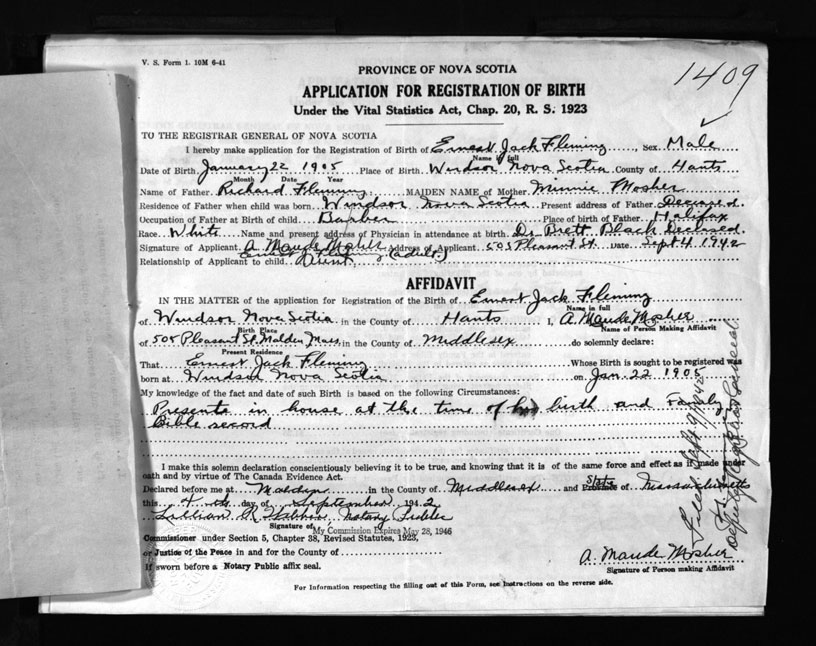 V. S. Form 1. 10M 6-41
PROVINCE OF NOVA SCOTIA
1409
APPLICATION FOR REGISTRATION OF BIRTH
Under the Vital Statistics Act, Chap. 20, R. S. 1923
TO THE REGISTRAR GENERAL OF NOVA SCOTIA
I hereby make application for the Registration of Birth of Ernest Jack Fleming, Sex Male
Name in full
Date of Birth January 22 1905 Place of Birth Windsor Nova Scotia County of Hants
Month Date Year
Name of Father Richard Fleming MAIDEN NAME of Mother Minnie Mosher
Residence of Father when child was born Windsor Nova Scotia Present address of Father Deceased
Occupation of Father at Birth of child Barber Place of birth of Father Halifax
Race White Name and present address of Physician in attendance at birth Dr Brett Black Deceased
Signature of Applicant A Maude Mosher Address of Applicant 505 Pleasant St. Date Sept 4 1942
Ernest J Fleming (adult)
Relationship of Applicant to child Aunt
AFFIDAVIT
IN THE MATTER of the application for Registration of the Birth of Ernest Jack Fleming
Name in full
of Windsor Nova Scotia in the County of Hants I, A Maude Mosher
Birth Place Name of Person Making Affidavit
of 505 Pleasant St Malden Mass in the County of Middlesex do solemnly declare:
Present Residence
That Ernest Jack Fleming Whose Birth is sought to be registered was
born at Windsor Nova Scotia on Jan. 22 1905
My knowledge of the fact and date of such Birth is based on the following Circumstances:
Presents in house at the time of his birth and Family
Bible record
I make this solemn declaration conscientiously believing it to be true, and knowing that it is of the same force and effect as if made under
oath and by virtue of The Canada Evidence Act.
Declared before me at Malden in the County of Middlesex and State Province of Massachusetts
this 4 th day of September 1942
Lillian R Notary Public
Signature of My Commission Expires May 28, 1946
Commissioner under Section 5, Chapter 38, Revised Statutes, 1923,
or Justice of the Peace in and for the County of
If sworn before a Notary Public affix seal.
A. Maude Mosher
Signature of Person making Affidavit
For Information respecting the filling out of this Form, see Instructions on the reverse side.
Filed Sept 9/1942
Deputy Registrar General